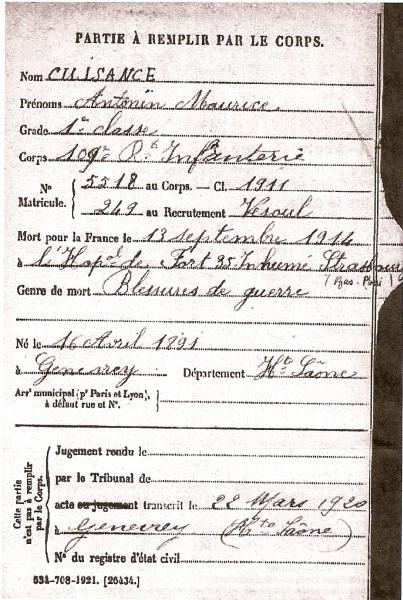 PARTIE À REMPLIR PAR LE CORPS.
Nom CUISANCE
Prénoms Antonin Maurice
Grade 1re classe
Corps 109e Rt Infanterie
No Matricule. 5518 au Corps. — Cl. 1911
249 au Recrutement Vesoul
Mort pour la France le 13 septembre 1914
à l'Hopal de Fort 35 Inhumé Strasbourg
(Bas-Rhin)
Genre de mort Blessures de guerre
Né le 16 Avril 1891
à Genevrey Département Hte Saône
Arrt municipal (pr Paris et Lyon), à défaut rue et No.
Cette partie n'est pas à remplir par le Corps.
Jugement rendu le
par le Tribunal de
acte ou jugement transcrit le 22 Mars 1920
à Genevrey (Hte Saône)
No du registre d'état civil
534-708-1921. [26434.]